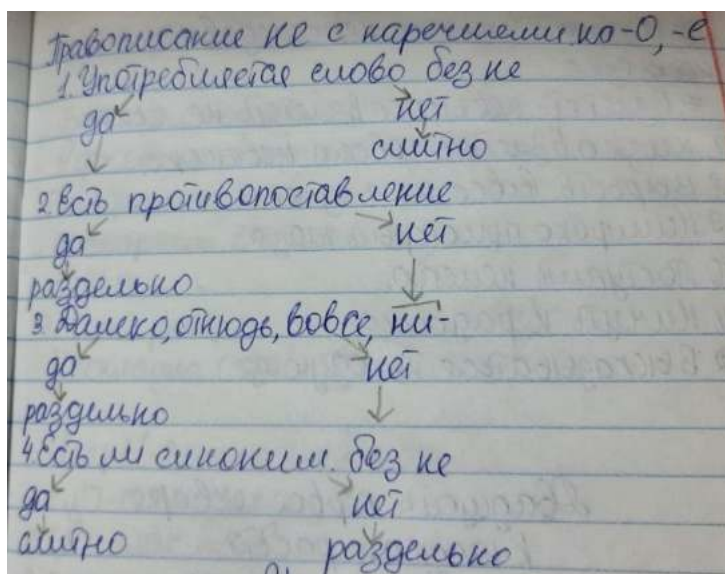 Правописание не с наречиями на -О, -е
1. Употребляется слово без не
да нет
слитно
2. Есть противопоставление
да нет
раздельно
3. Далеко, отнюдь, вовсе, ни-
да нет
раздельно
4. Есть ли синоним без не
да нет
слитно раздельно